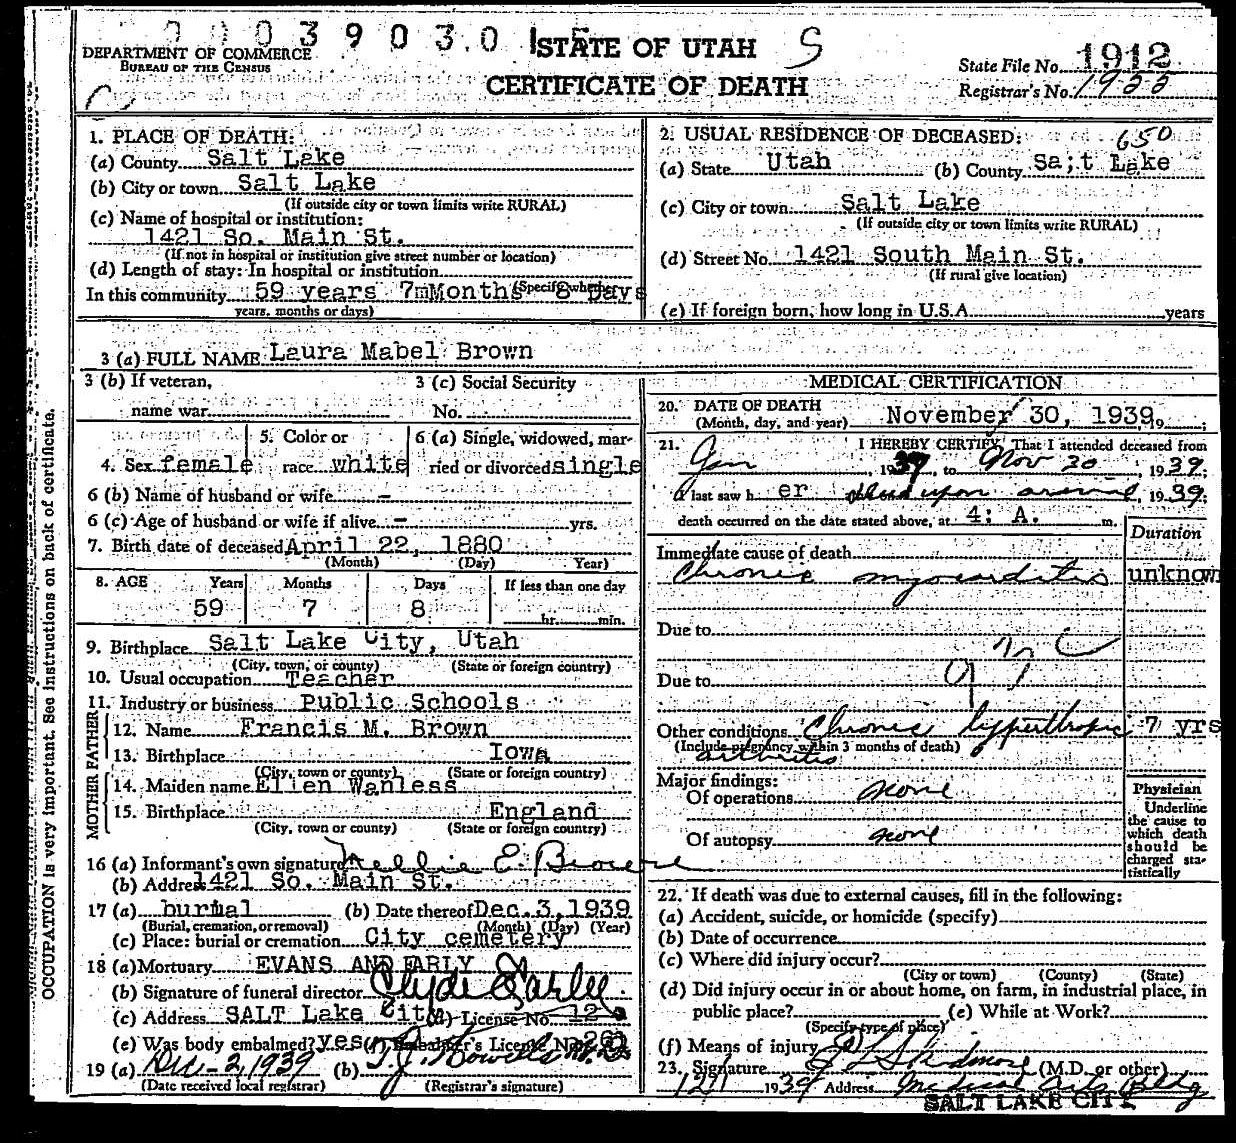 0 0 0 3 9 0 3 0 1 5
DEPARTMENT OF COMMERCE
BUREAU OF THE CENSUS
STATE OF UTAH S
CERTIFICATE OF DEATH
State File No. 1912
Registrar's No. 1955
1. PLACE OF DEATH:
(a) County Salt Lake
(b) City or town Salt Lake
(If outside city or town limits write RURAL)
(c) Name of hospital or institution:
1421 So. Main St.
(If not in hospital or institution give street number or location)
(d) Length of stay: In hospital or institution
(Specify whether
In this community 59 years 7mMonths 8 Days
years, months or days)
2. USUAL RESIDENCE OF DECEASED: 650
(a) State Utah (b) County Sa;t Lake
(c) City or town Salt Lake
(If outside city or town limits write RURAL)
(d) Street No. 1421 South Main St.
(If rural give location)
(e) If foreign born, how long in U.S.A. years
3 (a) FULL NAME Laura Mabel Brown
3 (b) If veteran, 3 (c) Social Security
name war No.
4. Sex female 5. Color or race white 6 (a) Single, widowed, married or divorced single
6 (b) Name of husband or wife -
6 (c) Age of husband or wife if alive - yrs.
7. Birth date of deceased April 22, 1880
(Month) (Day) Year)
8. AGE Years Months Days If less than one day
59 7 8 hr. min.
9. Birthplace Salt Lake City, Utah
(City, town, or county) (State or foreign country)
10. Usual occupation Teacher
11. Industry or business Public Schools
FATHER
12. Name Francis M. Brown
13. Birthplace Iowa
(City, town or county) (State or foreign country)
MOTHER
14. Maiden name Ellen Wanless
15. Birthplace England
(City, town or county) (State or foreign country)
16 (a) Informant's own signature Nellie E. Brown
(b) Address 1421 So. Main St.
17 (a) burmal (b) Date thereof Dec. 3, 1939
(Burial, cremation, or removal) (Month) (Day) (Year)
(c) Place: burial or cremation City cemetery
18 (a) Mortuary EVANS AND EARLY
(b) Signature of funeral director Clyde Early
(c) Address SALT Lake City (d) License No. 12
(e) Was body embalmed? yes (f) Embalmer's License No. 260
19 (a) Dec-2, 1939 (b) T.J. Howells
(Date received local registrar) (Registrar's signature)
MEDICAL CERTIFICATION
20. DATE OF DEATH
(Month, day, and year) November 30, 1939, 19 ;
21. I HEREBY CERTIFY, That I attended deceased from
Jan, 1939, to Nov 30, 1939;
I last saw h er dead upon arrival, 1939;
death occurred on the date stated above, at 4: A. m.
Duration
Immediate cause of death
Chronic myocarditis unknown
Due to
Due to
Other conditions Chronic hyperthropic 7 yrs
(Include pregnancy within 3 months of death)
arthritis
Major findings:
Of operations none
Of autopsy none
Physician
Underline
the cause to
which death
should be
charged sta-
tistically
22. If death was due to external causes, fill in the following:
(a) Accident, suicide, or homicide (specify)
(b) Date of occurrence
(c) Where did injury occur?
(City or town) (County) (State)
(d) Did injury occur in or about home, on farm, in industrial place, in
public place? (e) While at Work?
(Specify type of place)
(f) Means of injury
23. Signature Skidmore (M.D. or other)
12/1 1939 Address Medical Arts Bldg
SALT LAKE CITY
OCCUPATION is very important. See instructions on back of certificate.